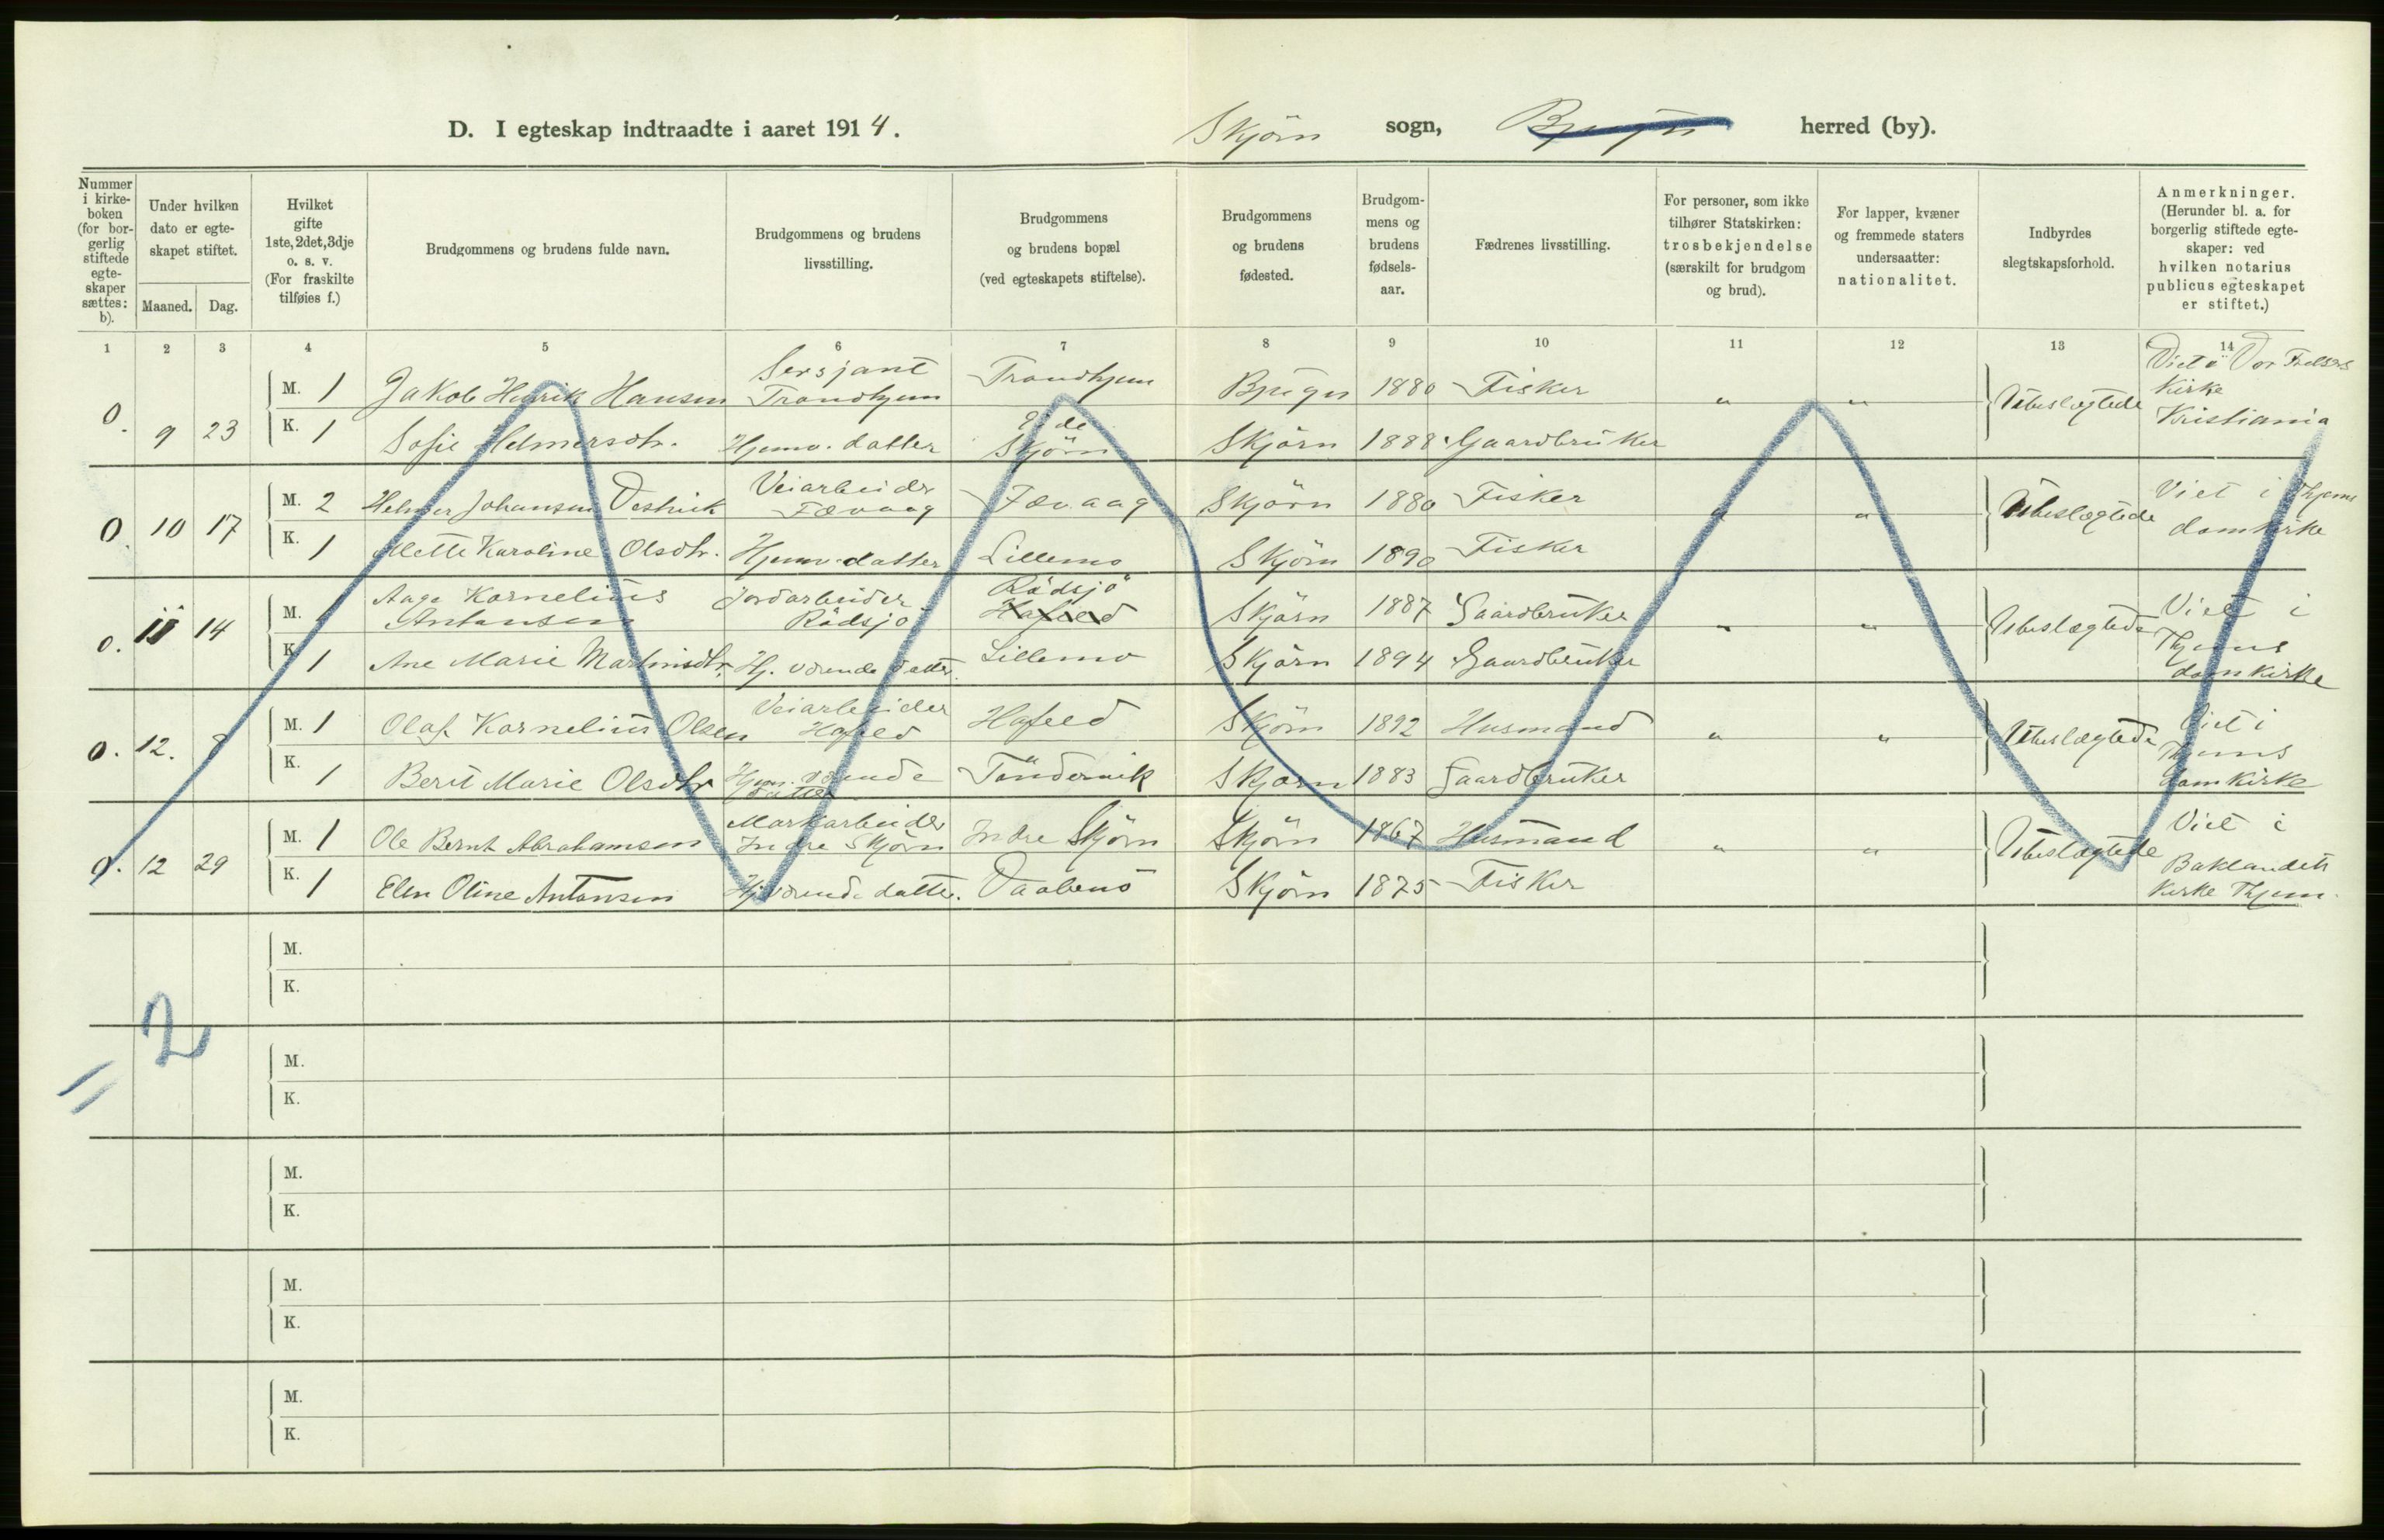 D. I egteskap indtraadte i aaret 1914. Skjörn sogn, Bjugn herred (by).
Nummer i kirke-boken (for bor-gerlig stiftede egte-skaper sættes: b).
Under hvilken dato er egte-skapet stiftet.
Maaned. Dag.
Hvilket gifte 1ste, 2det, 3dje o. s. v. (For fraskilte tilføies f.)
Brudgommens og brudens fulde navn.
Brudgommens og brudens livsstilling.
Brudgommens og brudens bopæl (ved egteskapets stiftelse).
Brudgommens og brudens fødested.
Brudgom-mens og brudens fødsels-aar.
Fædrenes livsstilling.
For personer, som ikke tilhører Statskirken: trosbekjendelse (særskilt for brudgom og brud).
For lapper, kvæner og fremmede staters undersaatter: nationalitet.
Indbyrdes slegtskapsforhold.
Anmerkninger. (Herunder bl. a. for borgerlig stiftede egte-skaper: ved hvilken notarius publicus egteskapet er stiftet.)
1 2 3 4 5 6 7 8 9 10 11 12 13 14
0. 9 23
M. 1 Jakob Henrik Hansen Sersjant Trondhjem Trondhjem Bjugn 1880 Fisker " " Ubeslegtede Viet i Vor Frelsers Kirke Kristiania
K. 1 Sofie Helmersdtr. Hjemv. datter Eide Skjörn Skjörn 1888 Gaardbruker
0. 10 17
M. 2 Helmer Johansen Vestvik Veiarbeider Fævaag Fævaag Skjörn 1880 Fisker " " Ubeslegtede Viet i Thjems domkirke
K. 1 Mette Karoline Olsdtr. Hjemv. datter Lillemo Skjörn 1890 Fisker
0. 11 14
M. 1 Aage Kornelius Antonsen Jordarbeider Rödsjö Rödsjö Hafeld Skjörn 1887 Gaardbruker " " Ubeslegtede Viet i Thjems domkirke
K. 1 Ane Marie Martinsdtr. Hj. værende datter. Lillemo Skjörn 1894 Gaardbruker
0. 12. 8
M. 1 Olaf Kornelius Olsen Veiarbeider Hafeld Hafeld Skjörn 1892 Husmand " " Ubeslegtede Viet i Thjems Domkirke
K. 1 Berit Marie Olsdtr Hjem. værende datter Töndervik Skjörn 1883 Gaardbruker
0. 12 29
M. 1 Ole Bernt Abrahamsen Markarbeider Indre Skjörn Indre Skjörn Skjörn 1867 Husmand " " Ubeslegtede Viet i Baklandets Kirke Thjem.
K. 1 Elen Oline Antonsen Hj. værende datter. Skjörn 1875 Fisker
M.
K.
2
M.
K.
M.
K.
M.
K.
M.
K.